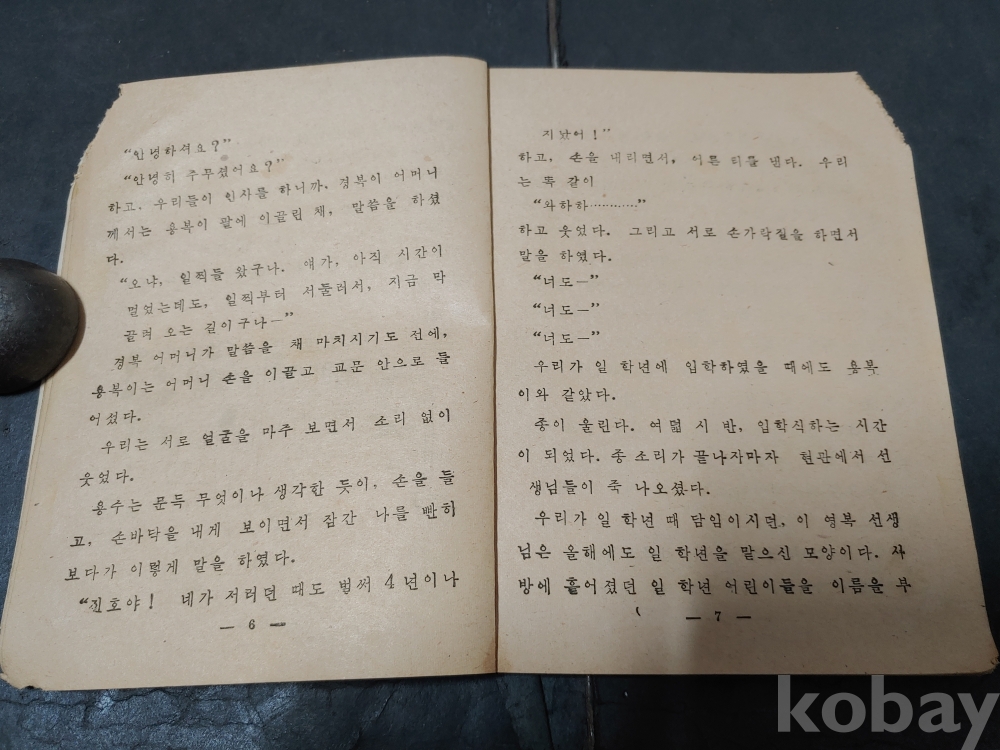 “안녕하셔요?”
“안녕히 주무셨어요?”
하고. 우리들이 인사를 하니까. 경복이 어머니
께서는 용복이 팔에 이끌린 채, 말씀을 하셨
다.
“오냐, 일찍들 왔구나. 얘가, 아직 시간이
멀었는데도, 일찍부터 서둘러서, 지금 막
끌려 오는 길이구나—”
경복 어머니가 말씀을 채 마치시기도 전에,
용복이는 어머니 손을 이끌고 교문 안으로 들
어섰다.
우리는 서로 얼굴을 마주 보면서 소리 없이
웃었다.
용수는 문득 무엇이나 생각한 듯이, 손을 들
고, 손바닥을 내게 보이면서 잠간 나를 빤히
보다가 이렇게 말을 하였다.
“진호야! 네가 저러던 때도 벌써 4년이나
— 6 —
지났어!”
하고, 손을 내리면서, 어른 티를 낸다. 우리
는 똑 같이
“와하하…………”
하고 웃었다. 그리고 서로 손가락질을 하면서
말을 하였다.
“너도—”
“너도—”
“너도—”
우리가 일 학년에 입학하였을 때에도 용복
이와 같았다.
종이 울린다. 여덟 시 반, 입학식하는 시간
이 되었다. 종 소리가 끝나자마자 현관에서 선
생님들이 죽 나오셨다.
우리가 일 학년 때 담임이시던, 이 영복 선생
님은 올해에도 일 학년을 맡으신 모양이다. 사
방에 흩어졌던 일 학년 어린이들을 이름을 부
— 7 —
kobay